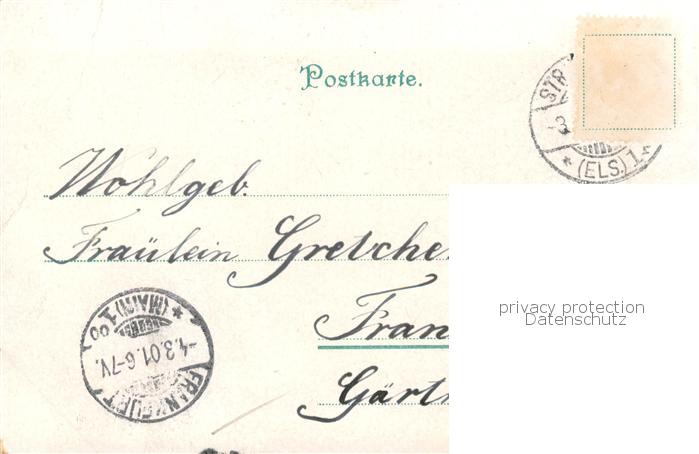 Postkarte.
STR
3
* (ELS.) 1
Wohlgeb.
Fräulein Gretche
privacy protection
Datenschutz
(MAIN) 1 *
-4.3.01.6-7V.
FRANKFURT
Fran
Gärt